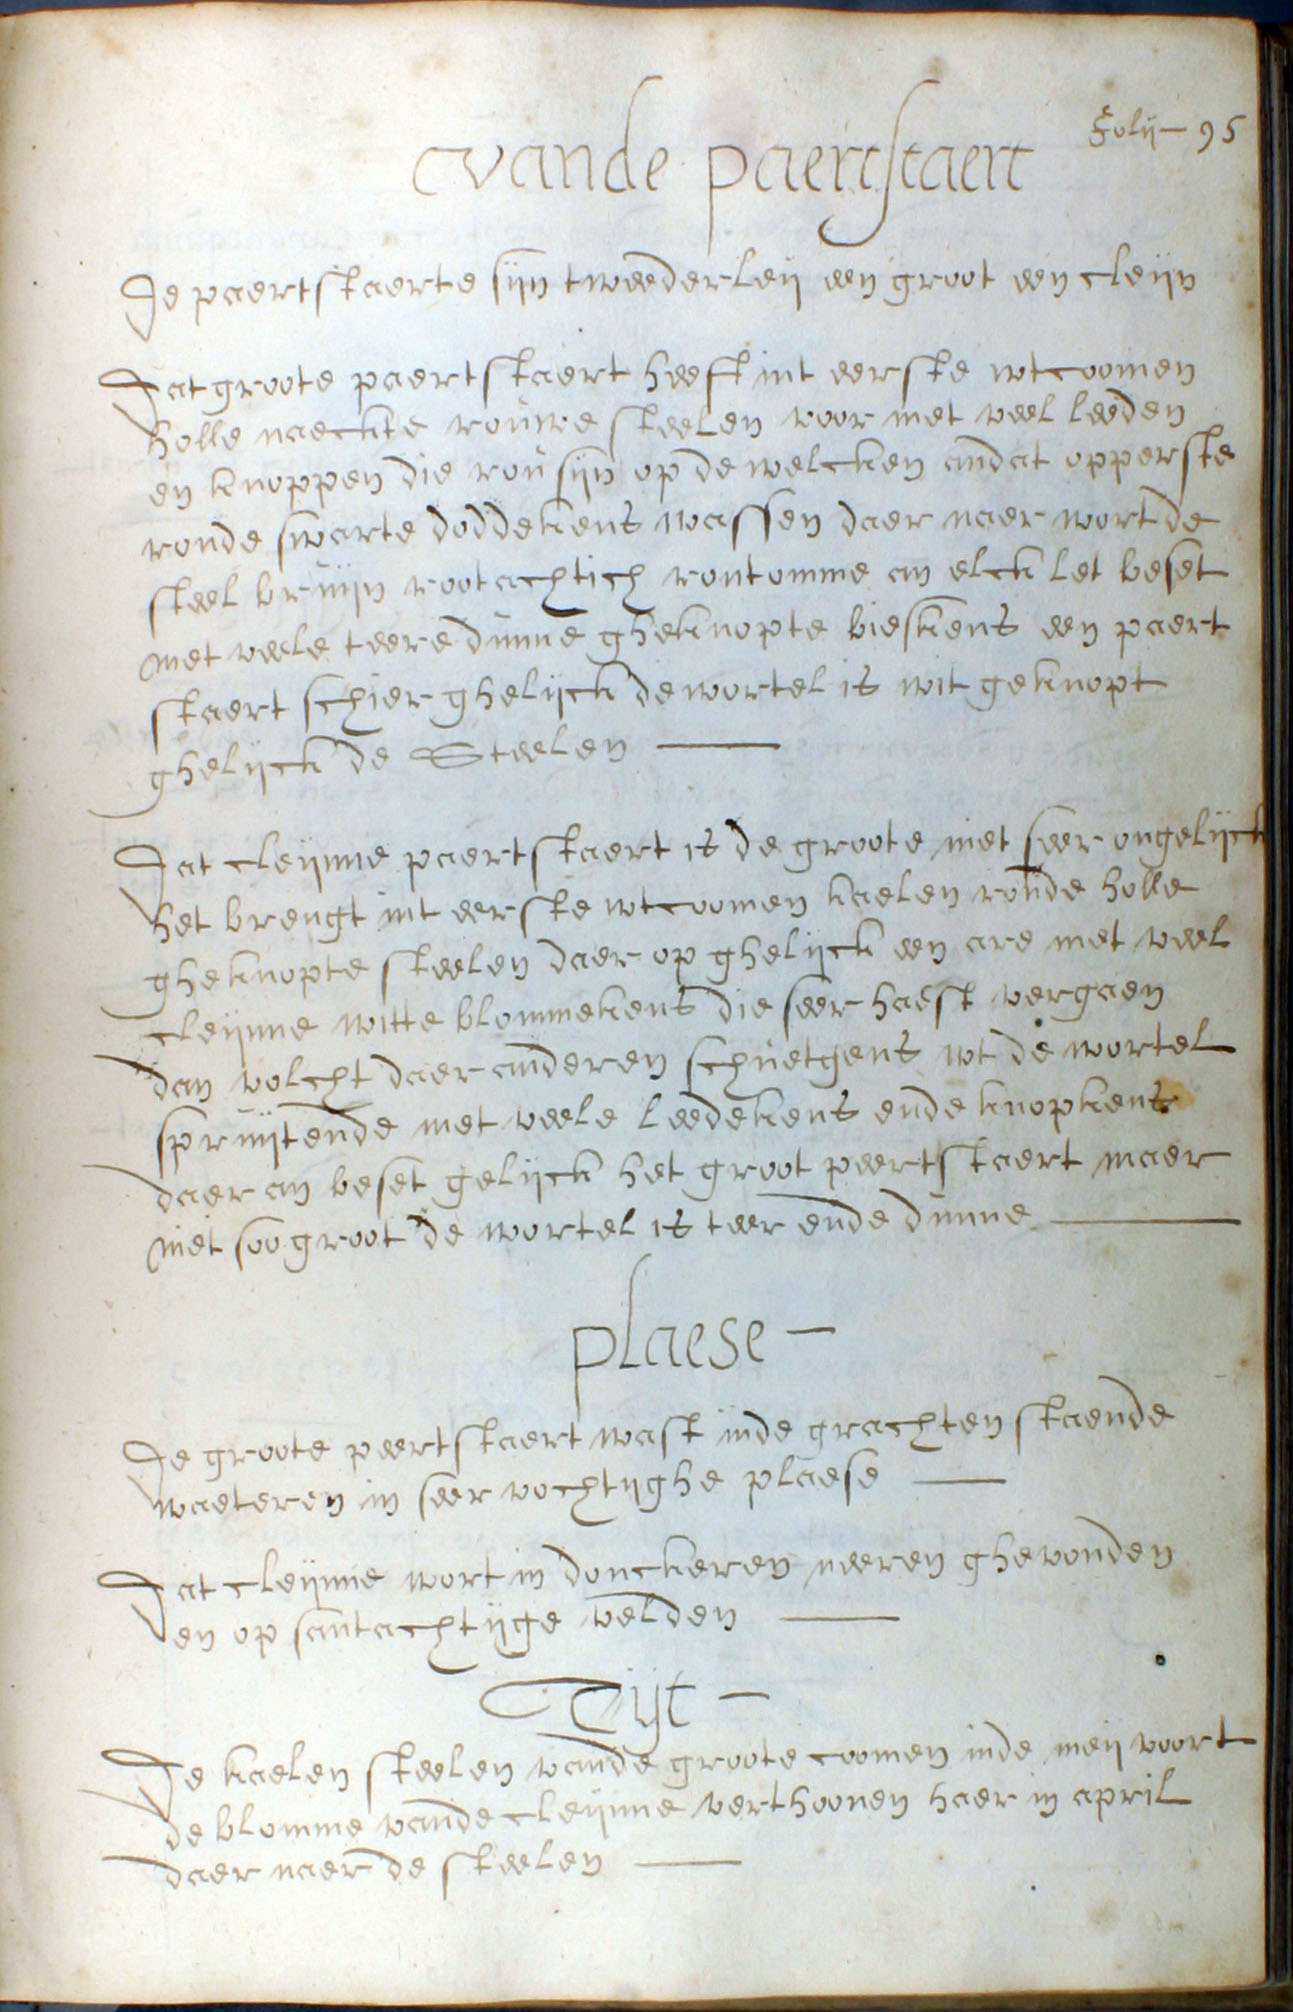 Folij – 95
vande paertstaert
De paertstaerte sijn tweederleij een groot een cleijn
Dat groote paertstaert heeft int eerste wtcoomen
holle naeckte rouwe steelen voor met veel leeden
en knoppen die rou sijn op de welcken andat opperste
ronde swarte doddekens wassen daer naer wort de
steel bruijn rootachtich rontomme an elck let beset
met veele teere dunne gheknopte bieskens een paert
staert schier ghelijck de wortel is wit geknopt
ghelijck de Steelen —
Dat cleijnne paertstaert is de groote niet seer ongelijck
het brengt int eerste wtcoomen kaelen ronde holle
gheknopte steelen daer op ghelijck een are met veel
cleijnne witte blommekens die seer haest vergaen
dan volcht daer anderen schuetgens wt de wortel
spruijtende met veele leedekens ende knopkens
daer an beset gelijck het groot peertstaert maer
niet soo groot de wortel is teer ende dunne —
plaese –
De groote peertstaert wast inde grachten staende
waeteren in seer vochtijghe plaese —
Dat cleijnne wort in donckeren neeren ghevonden
en op santachtijge velden —
Tijt –
De kaelen steelen vande groote coomen inde meij voort
de blomme vande cleijnne verthoonen haer in april
daer naer de steelen —